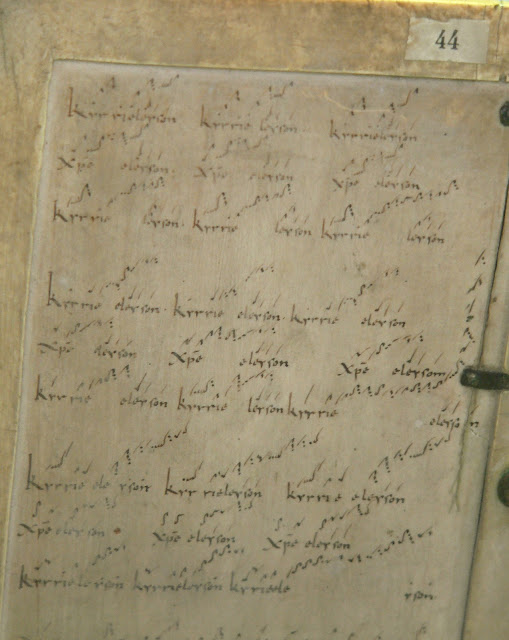 44
kyrrieleyson kyrrie leyson kyrrieleyson
xp̄e eleyson xp̄e eleyson xp̄e eleyson
kyrrie leyson kyrrie leyson kyrrie leyson
kyrrie eleyson kyrrie eleyson kyrrie eleyson
xp̄e eleyson xp̄e eleyson xp̄e eleyson
kyrrie eleyson kyrrie leyson kyrrie
eleyson
kyrrie ele yson kyr rieleyson kyrrie eleyson
xp̄e eleyson xp̄e eleyson xp̄e eleyson
kyrrieleyson kyrrieleyson kyrriele
yson